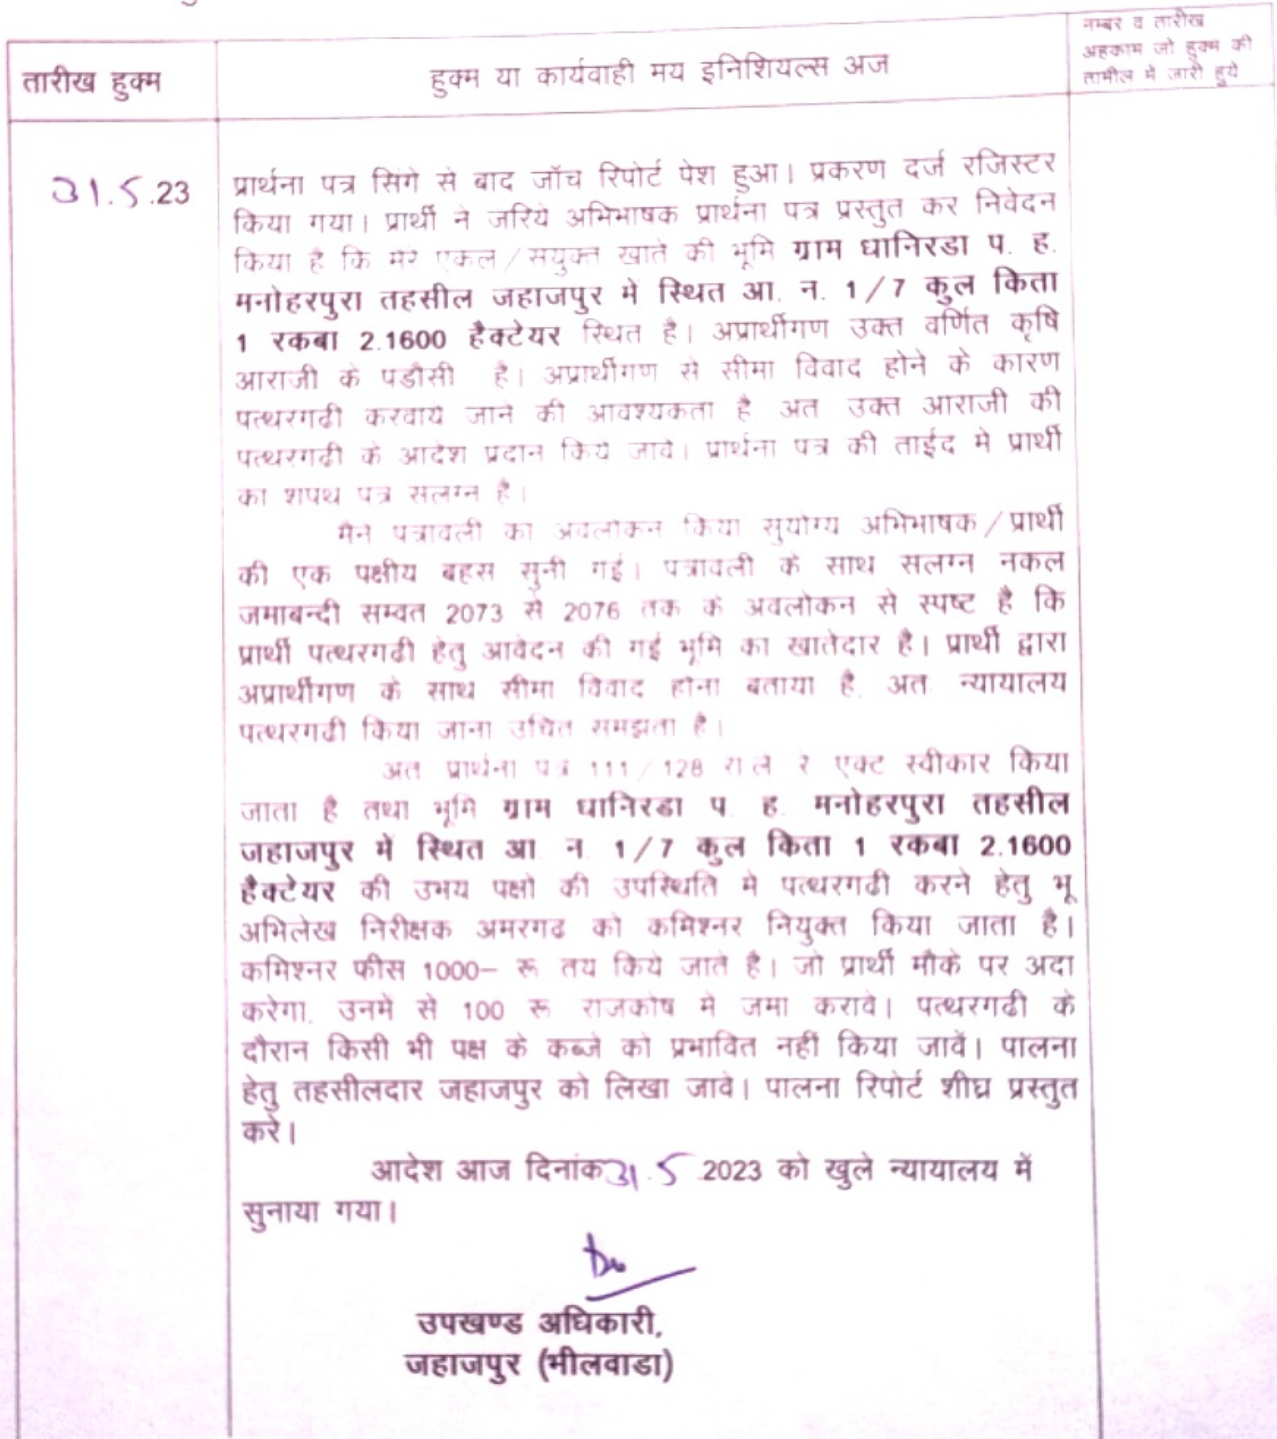 नम्बर व तारीख
अहकाम जो हुक्म की
तामील में जारी हुये
तारीख हुक्म
हुक्म या कार्यवाही मय इनिशियल्स अज
31.5.23
प्रार्थना पत्र सिगे से बाद जॉच रिपोर्ट पेश हुआ। प्रकरण दर्ज रजिस्टर
किया गया। प्रार्थी ने जरिये अभिभाषक प्रार्थना पत्र प्रस्तुत कर निवेदन
किया है कि मेरे एकल/सयुक्त खाते की भूमि ग्राम धानिरडा प. ह.
मनोहरपुरा तहसील जहाजपुर में स्थित आ. न. 1/7 कुल किता
1 रकबा 2.1600 हैक्टेयर स्थित है। अप्रार्थीगण उक्त वर्णित कृषि
आराजी के पडौसी है। अप्रार्थीगण से सीमा विवाद होने के कारण
पत्थरगढी करवाये जाने की आवश्यकता है अत उक्त आराजी की
पत्थरगढी के आदेश प्रदान किये जावे। प्रार्थना पत्र की ताईद मे प्रार्थी
का शपथ पत्र सलग्न है।
मैने पत्रावली का अवलोकन किया सुयोग्य अभिभाषक/प्रार्थी
की एक पक्षीय बहस सुनी गई। पत्रावली के साथ सलग्न नकल
जमाबन्दी सम्वत 2073 से 2076 तक के अवलोकन से स्पष्ट है कि
प्रार्थी पत्थरगढी हेतु आवेदन की गई भूमि का खातेदार है। प्रार्थी द्वारा
अप्रार्थीगण के साथ सीमा विवाद होना बताया है, अत न्यायालय
पत्थरगढी किया जाना उचित समझता है।
अत प्रार्थना पत्र 111/128 रा ले रे एक्ट स्वीकार किया
जाता है तथा भूमि ग्राम धानिरडा प. ह. मनोहरपुरा तहसील
जहाजपुर में स्थित आ. न. 1/7 कुल किता 1 रकबा 2.1600
हैक्टेयर की उभय पक्षो की उपस्थिति मे पत्थरगढी करने हेतु भू
अभिलेख निरीक्षक अमरगढ को कमिश्नर नियुक्त किया जाता है।
कमिश्नर फीस 1000– रू तय किये जाते है। जो प्रार्थी मौके पर अदा
करेगा, उनमे से 100 रू राजकोष मे जमा करावे। पत्थरगढी के
दौरान किसी भी पक्ष के कब्जे को प्रभावित नहीं किया जावें। पालना
हेतु तहसीलदार जहाजपुर को लिखा जावे। पालना रिपोर्ट शीघ्र प्रस्तुत
करे।
आदेश आज दिनांक 31.5 2023 को खुले न्यायालय में
सुनाया गया।
उपखण्ड अधिकारी,
जहाजपुर (भीलवाडा)